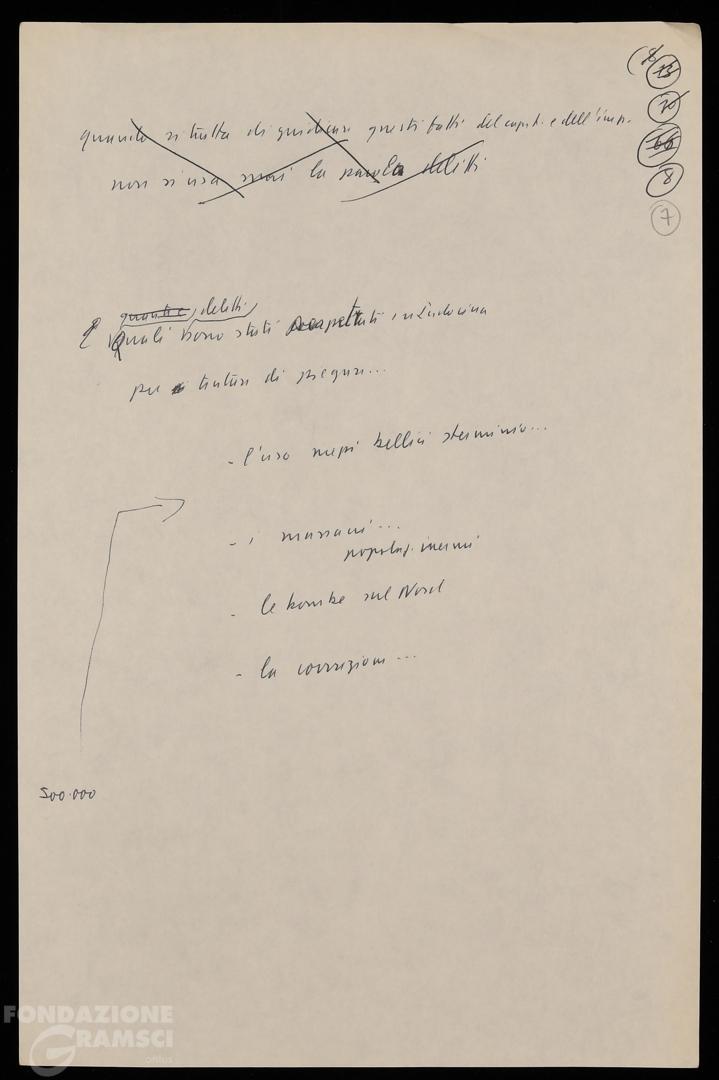 13
10
66
8
7
quando si tratta di giudicare questi fatti del capit. e dell'imp.
non si usa mai la parola delitti
quanti e delitti
E Quali sono stati perpetrati in Indocina
per tentare di piegare...
- l'uso mezzi bellici sterminio...
- i massacri...
popolaz. inermi
- le bombe sul Nord
- la corruzione...
500.000
FONDAZIONE
GRAMSCI
onlus